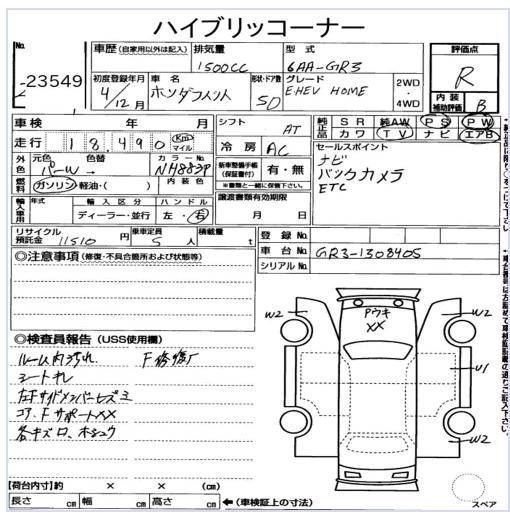 ハイブリッコーナー
No. -23549
車歴 (自家用以外は記入) 排気量 1500CC 型式 6AA-GR3 評価点 R
初度登録年月 4/12月 車名 ホンダフィット 形状・ドア数 5D グレード E.HEV HOME 2WD・4WD 内装補助評価 B
車検 年 月 シフト AT 純正品 SR 純AW PS PW
カワ TV ナビ エアB
走行 18,490 Km マイル 冷房 AC セールスポイント
ナビ
バックカメラ
ETC
外色 元色 パール → 色替 カラーNo. NH883P 新車整備手帳(保証書付) 有・無
※書類と一緒に保管下さい。
燃料 ガソリン・軽油・( ) 内装色
輸入車用 年式 輸入区分 ディーラー・並行 ハンドル 左・右 譲渡書類有効期限 月 日
リサイクル預託金 11510 円 乗車定員 5 人 積載量 t 登録No.
車台No. GR3-1308405
シリアルNo.
◎注意事項 (修復・不具合箇所および状態等)
◎検査員報告 (USS使用欄)
ルーム内汚れ F修復
シートキレ
左Fサイドメンバーヒズミ
コア、Fサポート××
各キズ
Pウキ
××
W2
W2
U1
W2
【荷台内寸】約 × × (cm)
長さ cm 幅 cm 高さ cm ←(車検証上の寸法)
スペア